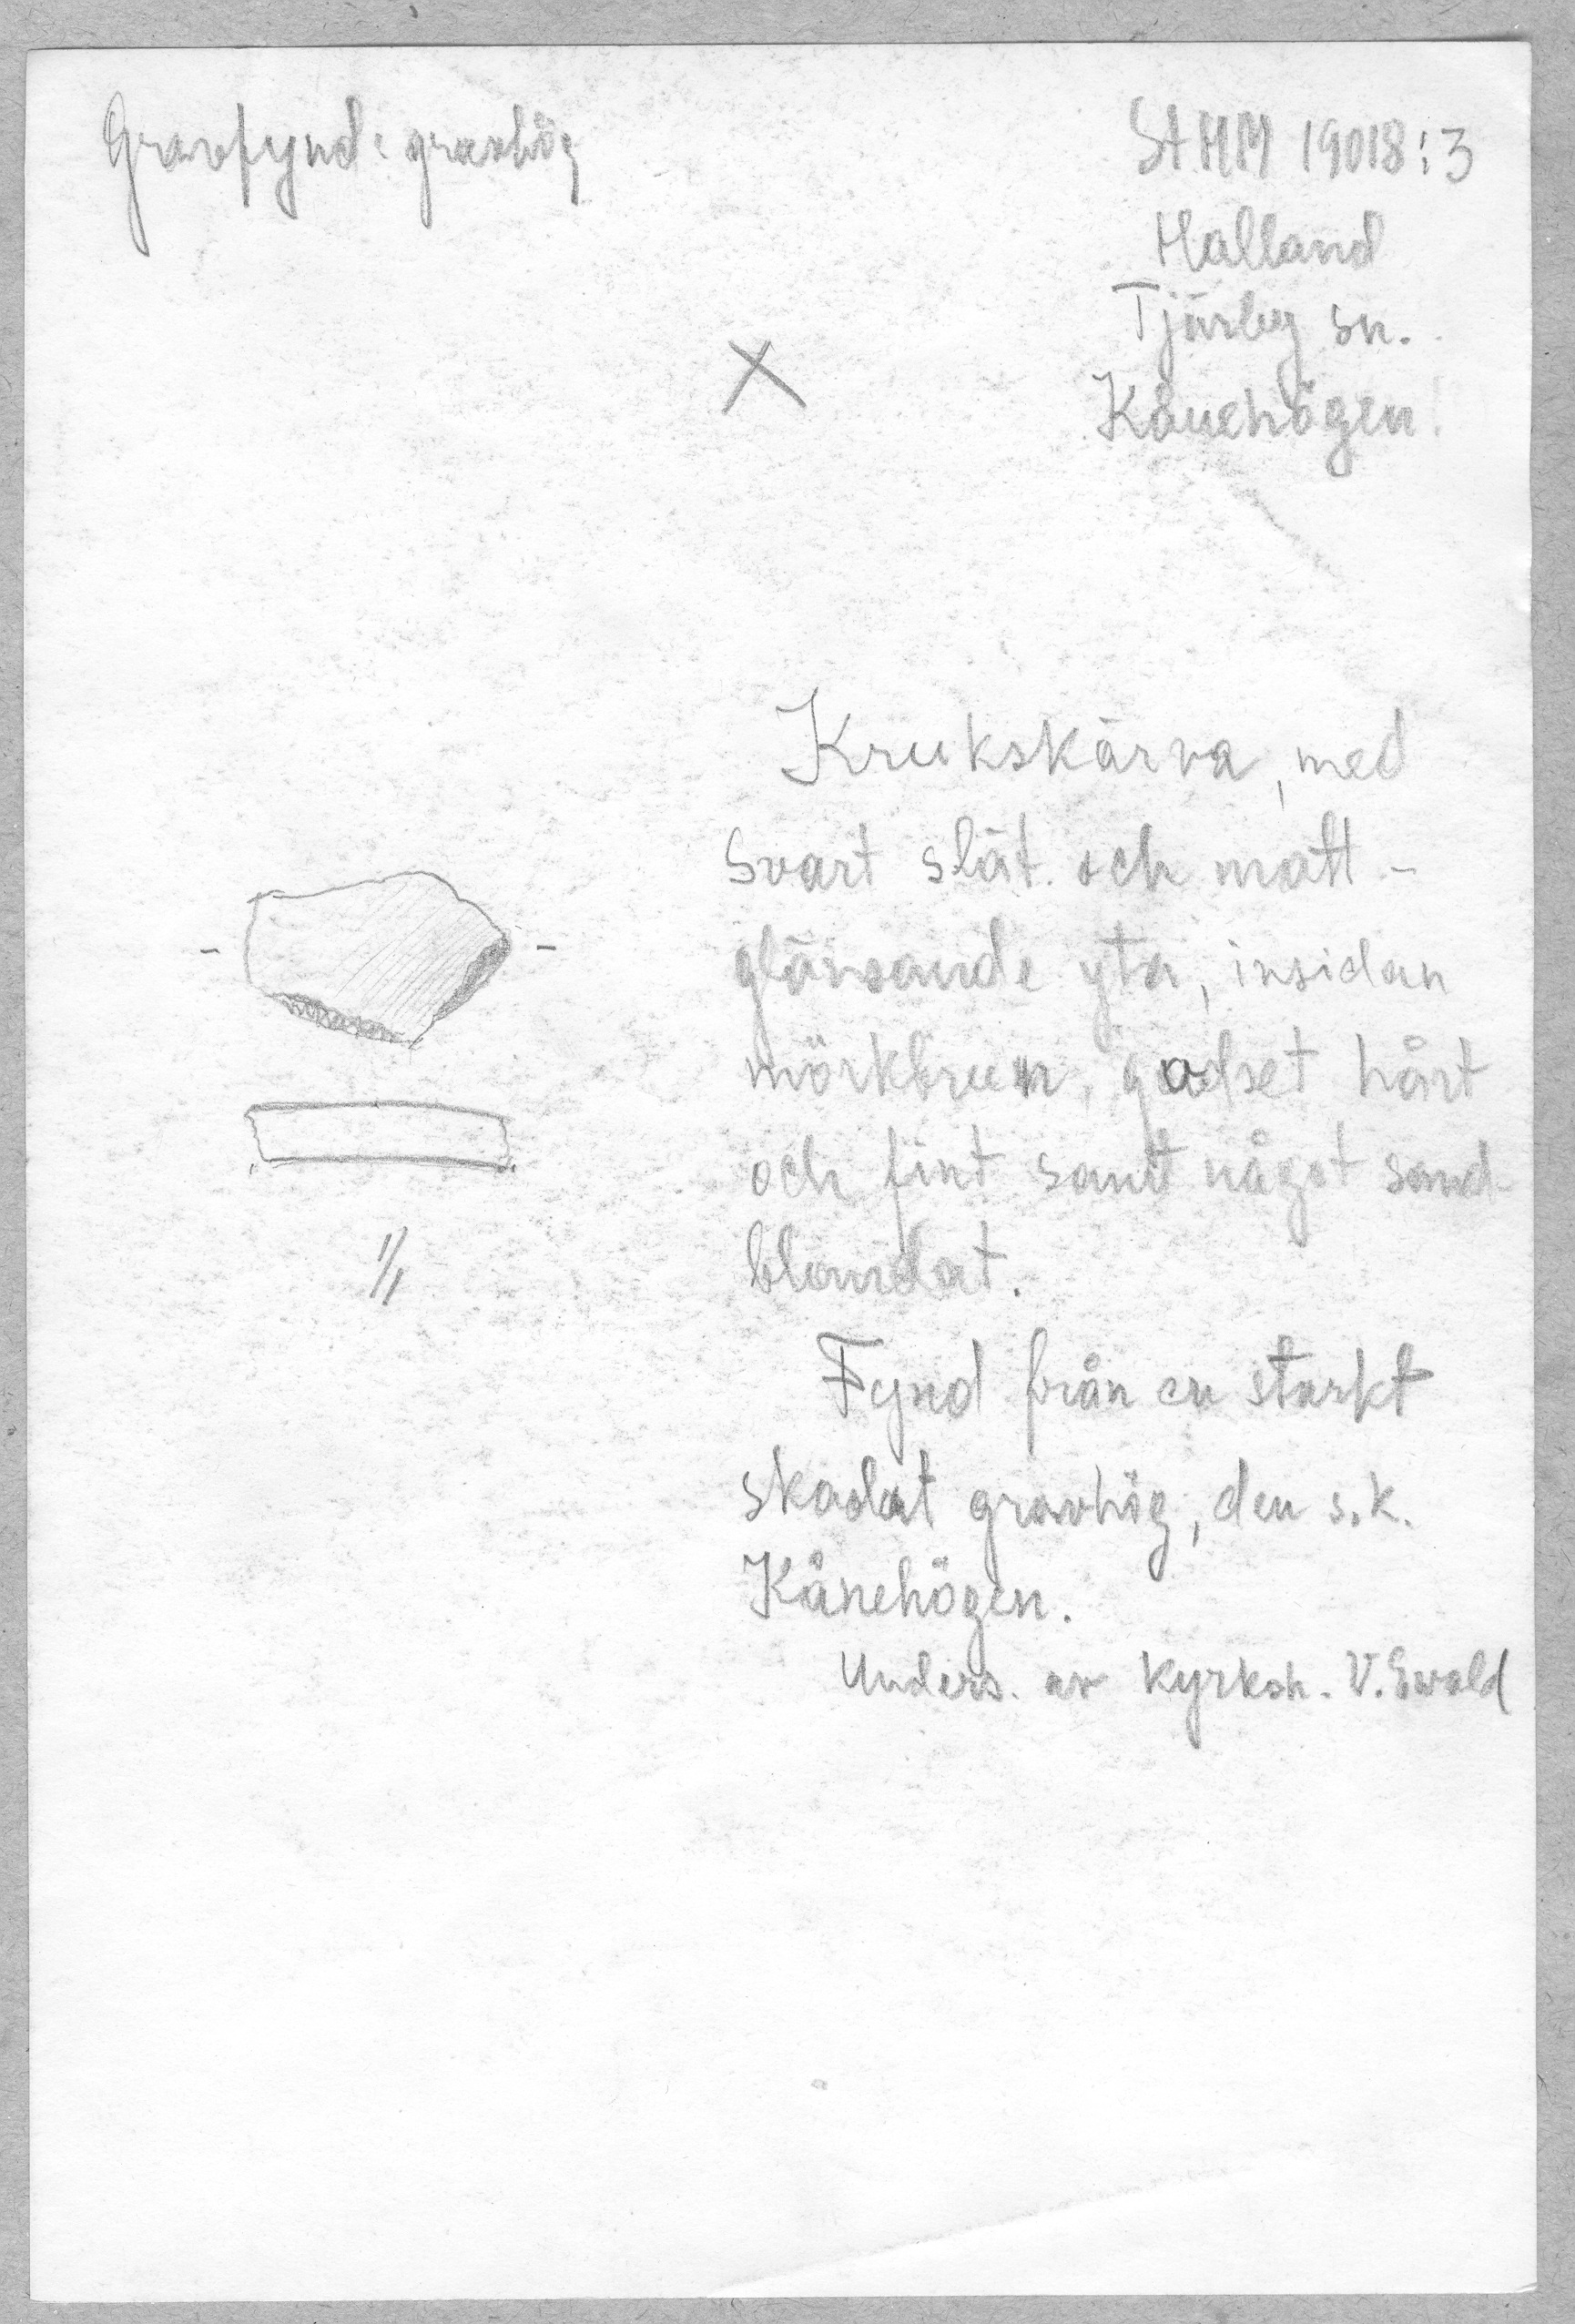 Gravfynd: gravhög
St. HM 19018:3
Halland
Tjärby sn.
Kånehögen
X
Krukskärva, med
svart slät och matt-
glänsande yta, insidan
mörkbrun, godset hårt
och fint samt något sand-
blandat.
1/1
Fynd från en starkt
skadat gravhög, den s.k.
Kånehögen.
Unders. av kyrkoh. V. Ewald